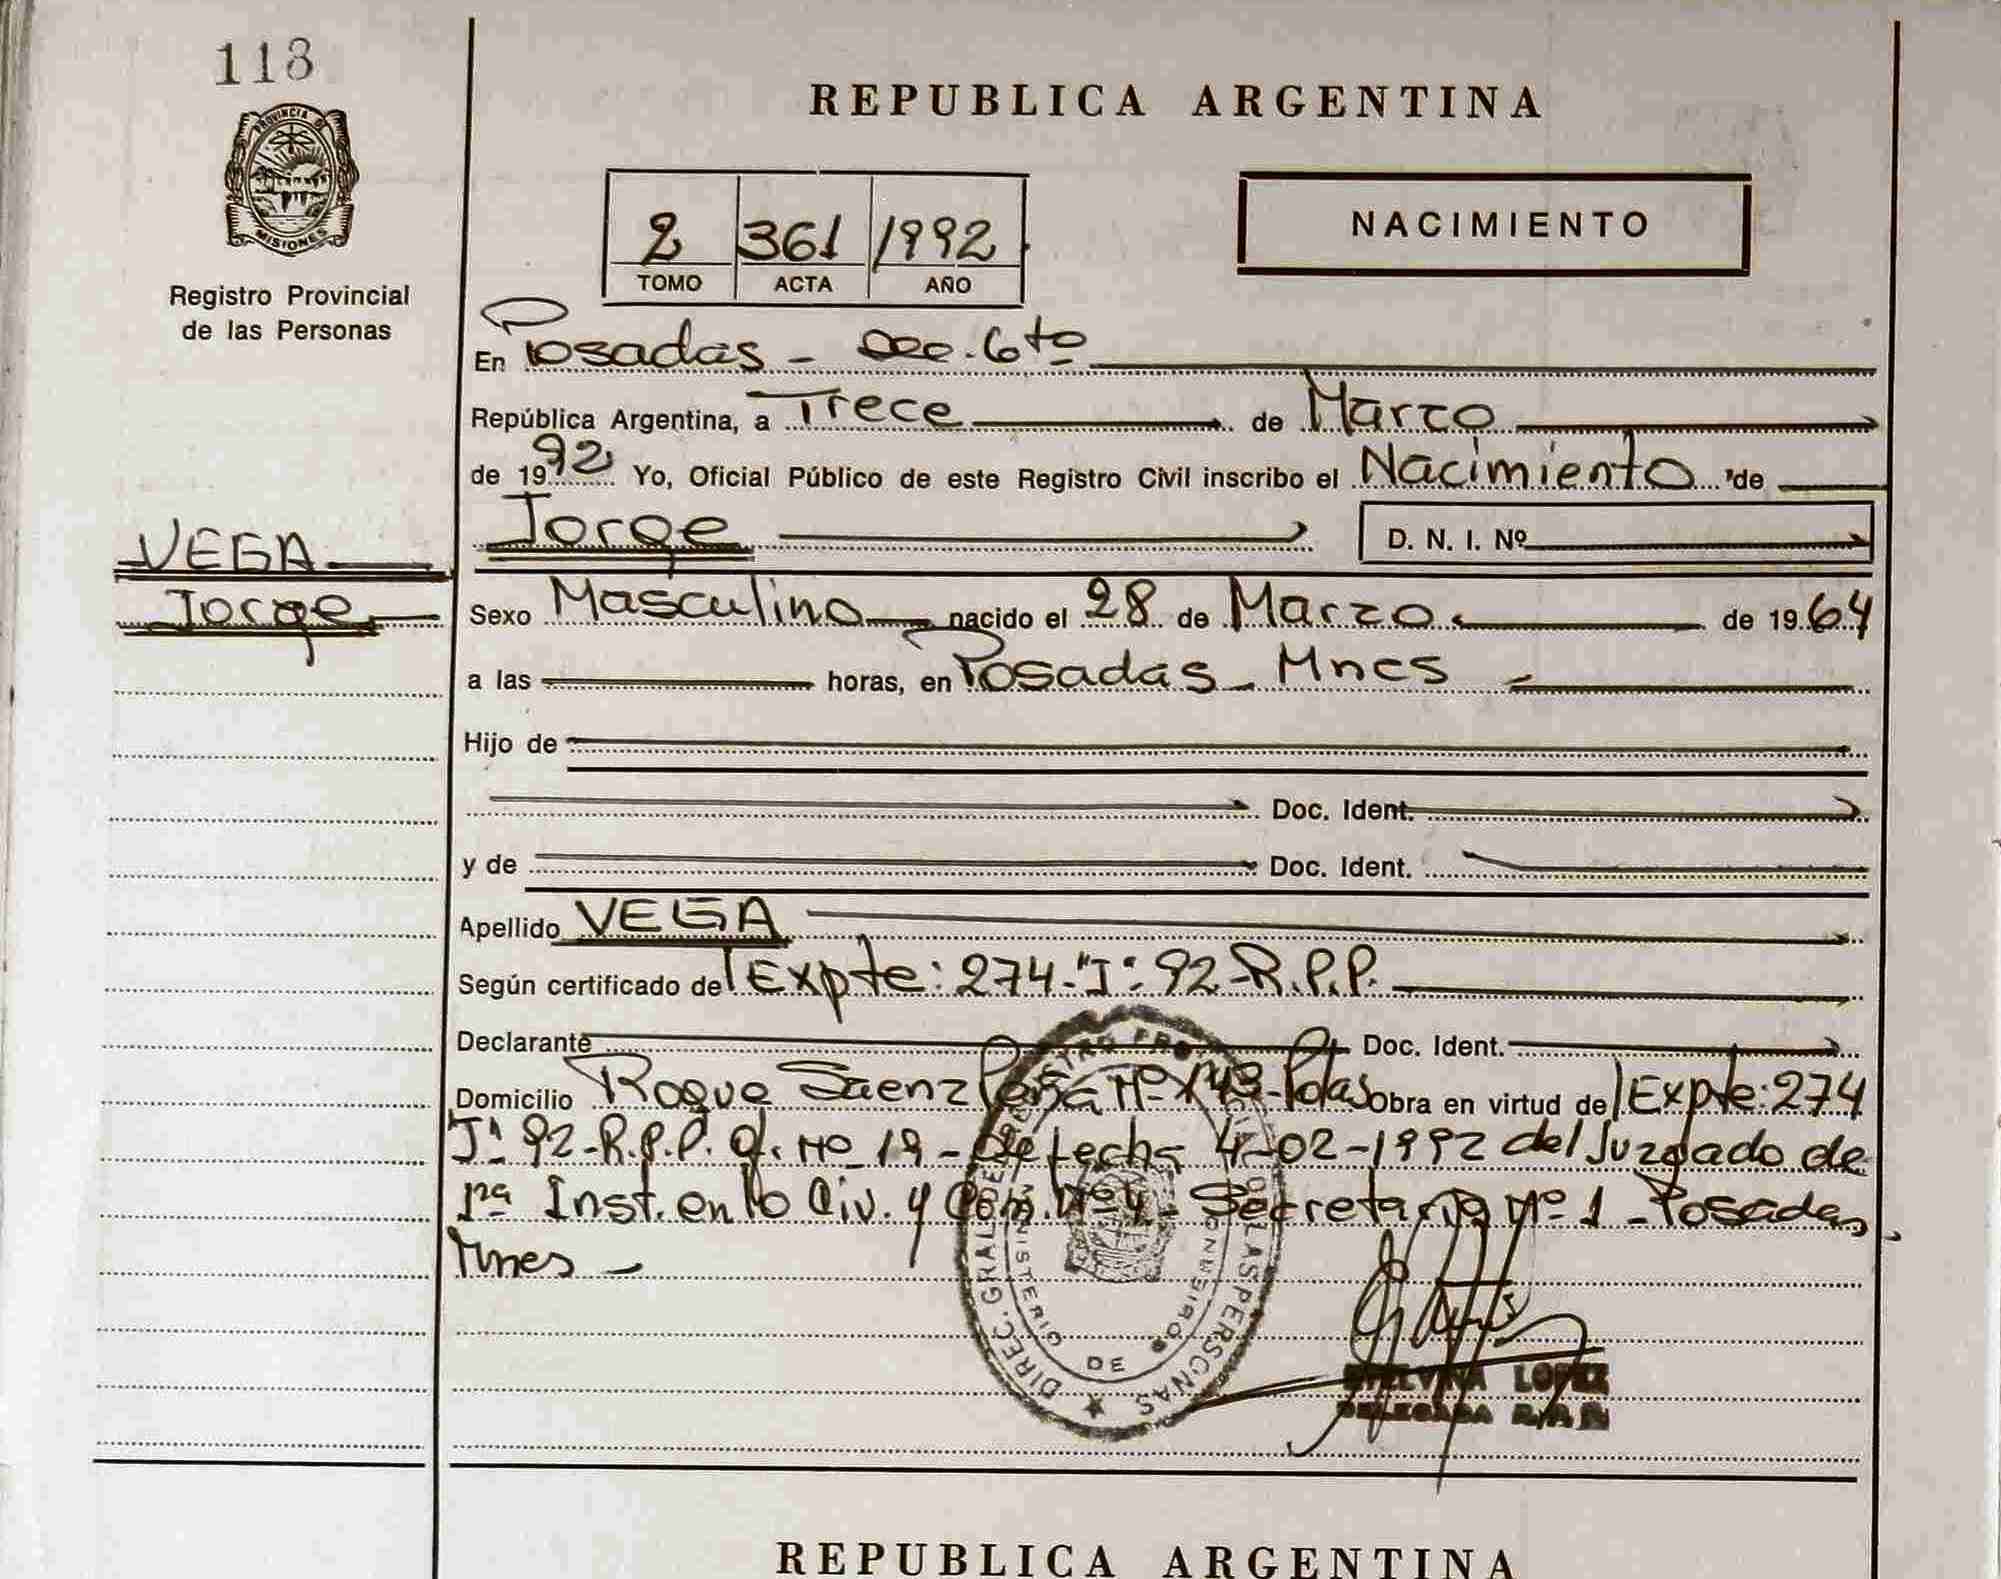 118
PROVINCIA DE
MISIONES
Registro Provincial
de las Personas
VEGA
Jorge
REPUBLICA ARGENTINA
2 361 1992
TOMO ACTA AÑO
NACIMIENTO
En Posadas - Sec. 6to
República Argentina, a Trece de Marzo
de 1992 Yo, Oficial Público de este Registro Civil inscribo el Nacimiento de
Jorge D. N. I. Nº
Sexo Masculino nacido el 28 de Marzo de 1964
a las horas, en Posadas - Mnes -
Hijo de
Doc. Ident.
y de Doc. Ident.
Apellido VEGA
Según certificado de Expte: 274-"J"-92-R.P.P.
Declarante Doc. Ident.
Domicilio Roque Saenz Peña Nº 143-Pdas Obra en virtud de Expte: 274
"J" 92-R.P.P. of. Nº 19 - de fecha 4-02-1992 del Juzgado de
1ra Inst. en lo Civ. y Com. Nº 4 - Secretaria Nº 1 - Posadas,
Mnes -
DIREC. GRAL. DE REGISTRO PROV. DE LAS PERSONAS
MINISTERIO DE GOBIERNO
LOPEZ
DELEGADA
REPUBLICA ARGENTINA